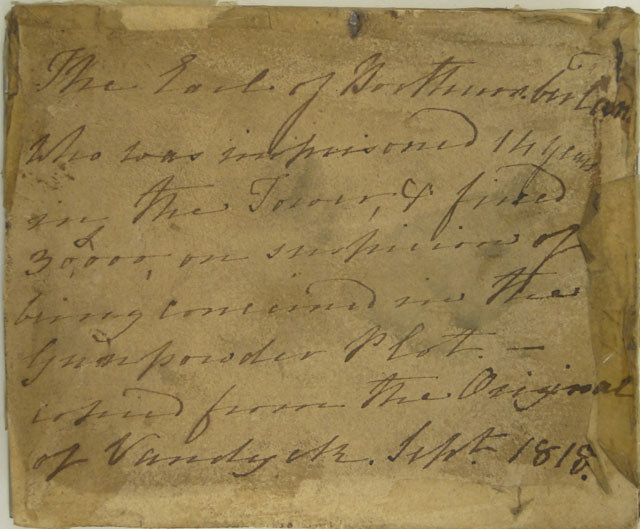 The Earl of Northumberlan
Who was imprisoned 14 years
in the Tower, & fined
30,000£, on suspicion of
being concerned in the
Gunpowder Plot. —
copied from the Original
of Vandyck. Sept. 1818.